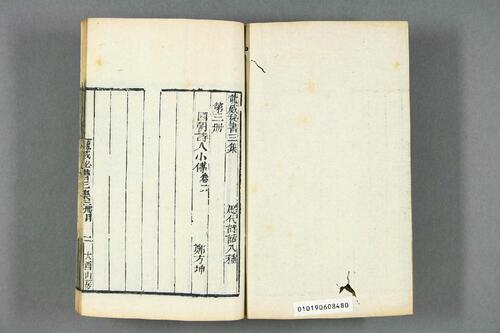 龍威秘書三集
歷代詩話八種
第三册
國朝詩人小傳卷二
鄭方坤
龍威秘書三集三册目
一
大酉山房
010190608480